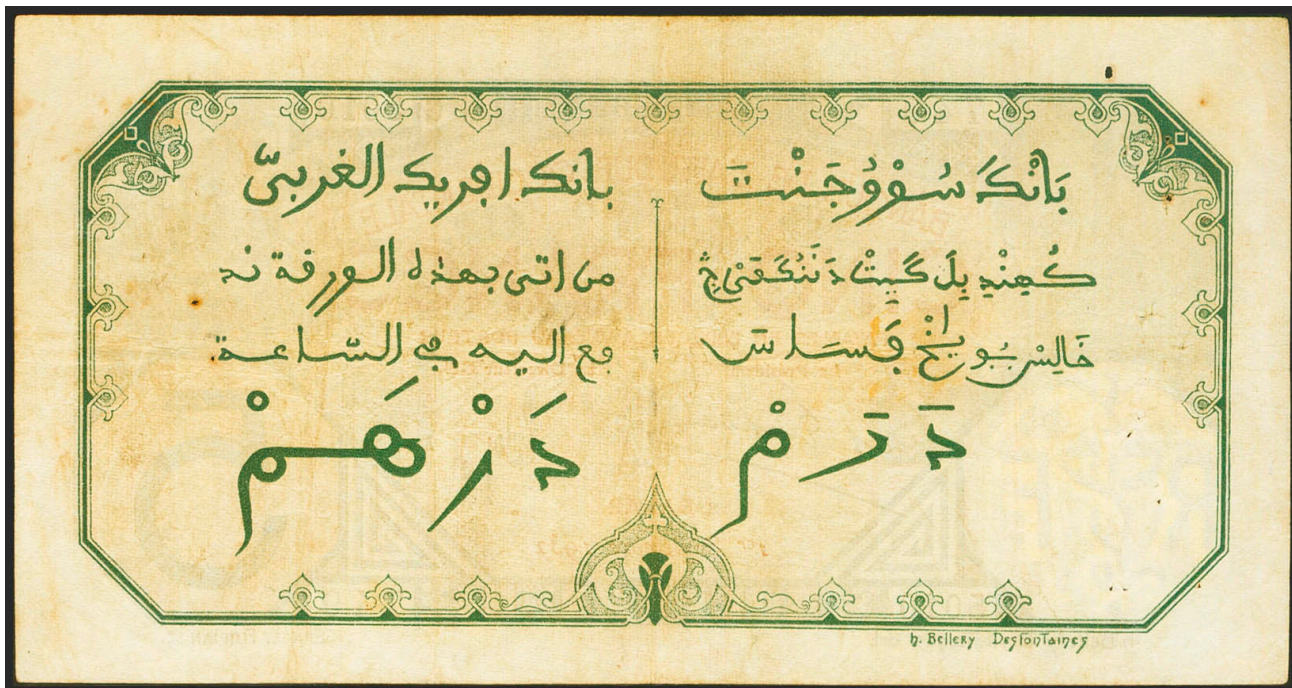 بَانْكَ سُفْوُجَنْتَ
كُهِنْدِ بِلَ كَيِتْ
خَالِسْ
دَرَمْ
بانك افريك الغربيّ
من اتى بهذه الورقة ند
فع اليه في السّاعة
دَرْهَمْ
h. Bellery Desfontaines